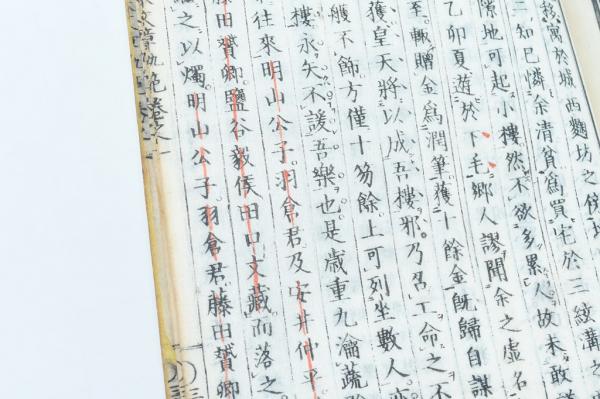 寓於城西麴坊之後
知己憐余清貧爲買宅於三紋溝之
隙地可起小樓然不欲多累人故未敢
乙卯夏遊於下毛鄉人謬聞余之虛名
至輒贈金爲潤筆獲十餘金既歸自謀
獲皇天將以成吾樓邪乃召工命之不
艧不飾方僅十笏餘上可列坐數人
樓永矢不諼吾樂也是歲重九瀹蔬
往來明山公子羽倉君及安井仲平
藤田贇卿鹽谷毅侯田口文藏而落之
之以燭明山公子羽倉君藤田贇卿